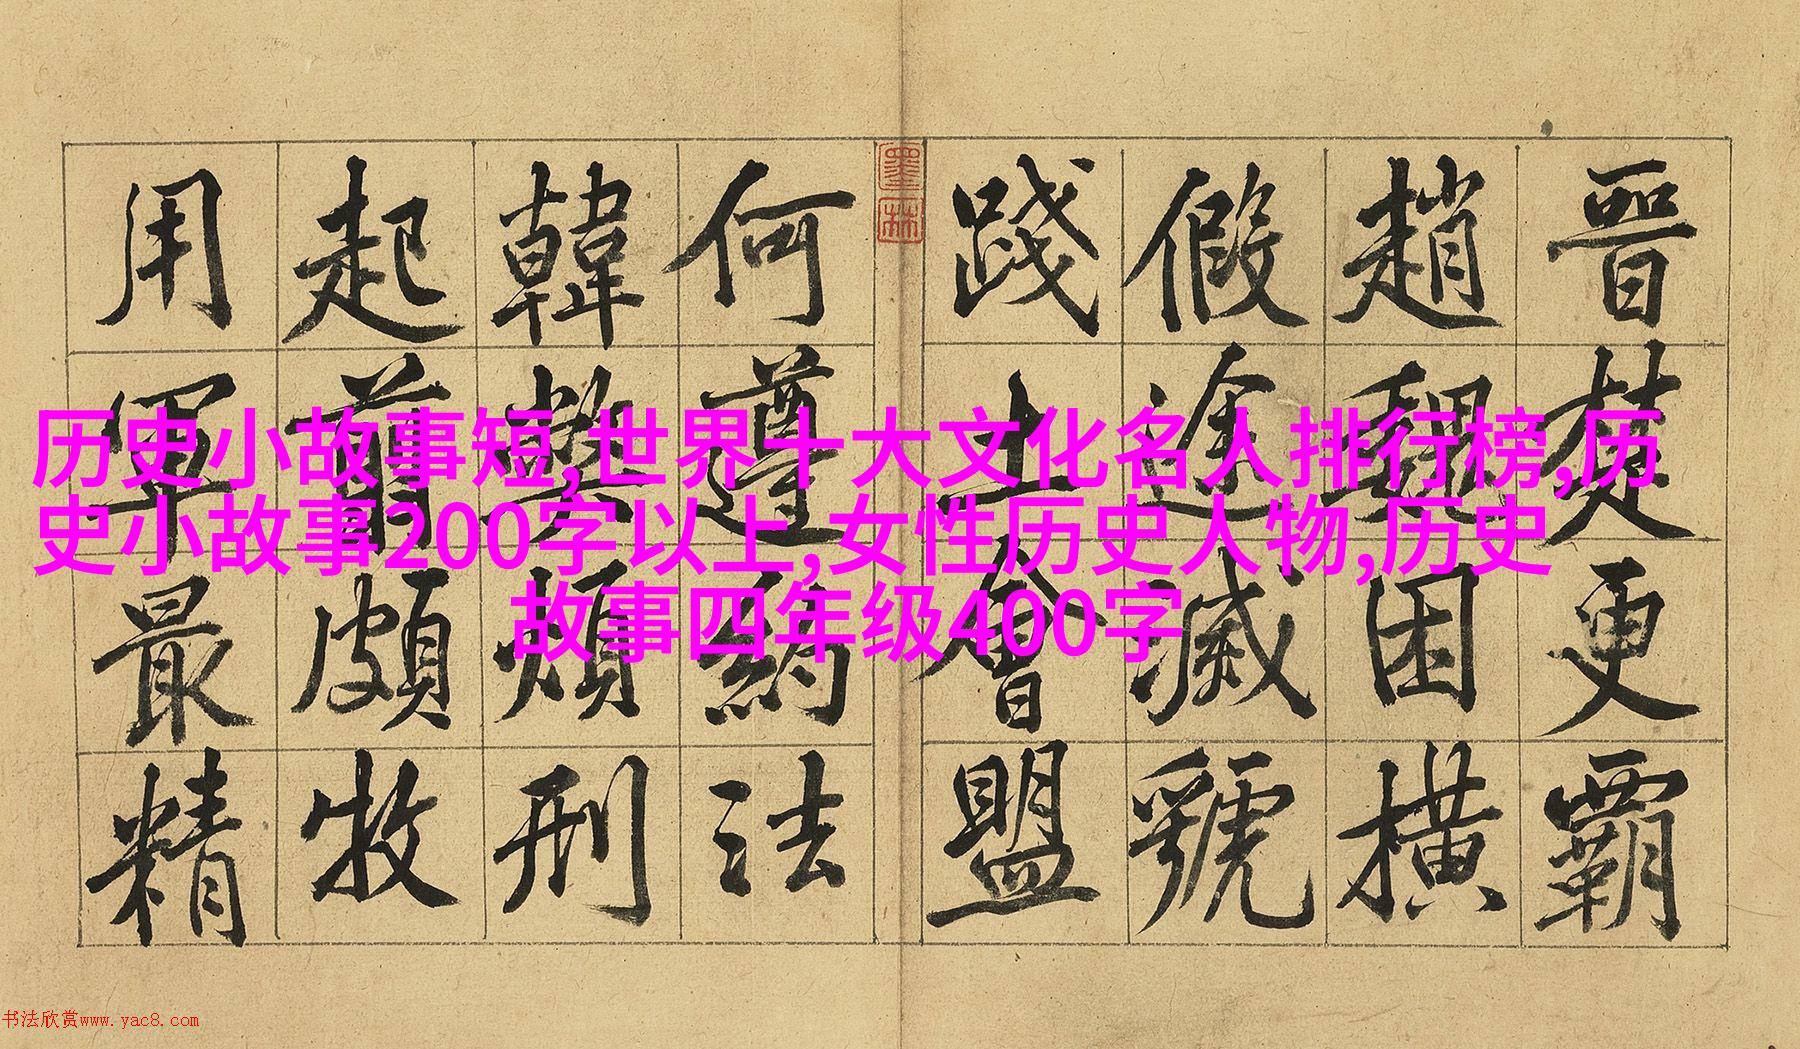 晉楚更霸
趙魏困橫
假途滅虢
踐土會盟
墨林
何遵約法
韓弊煩刑
起翦頗牧
用軍最精
历史小故事短,世界十大文化名人排行榜,历
史小故事200字以上,女性历史人物,历史
故事四年级400字
书法欣赏www.yac8.com